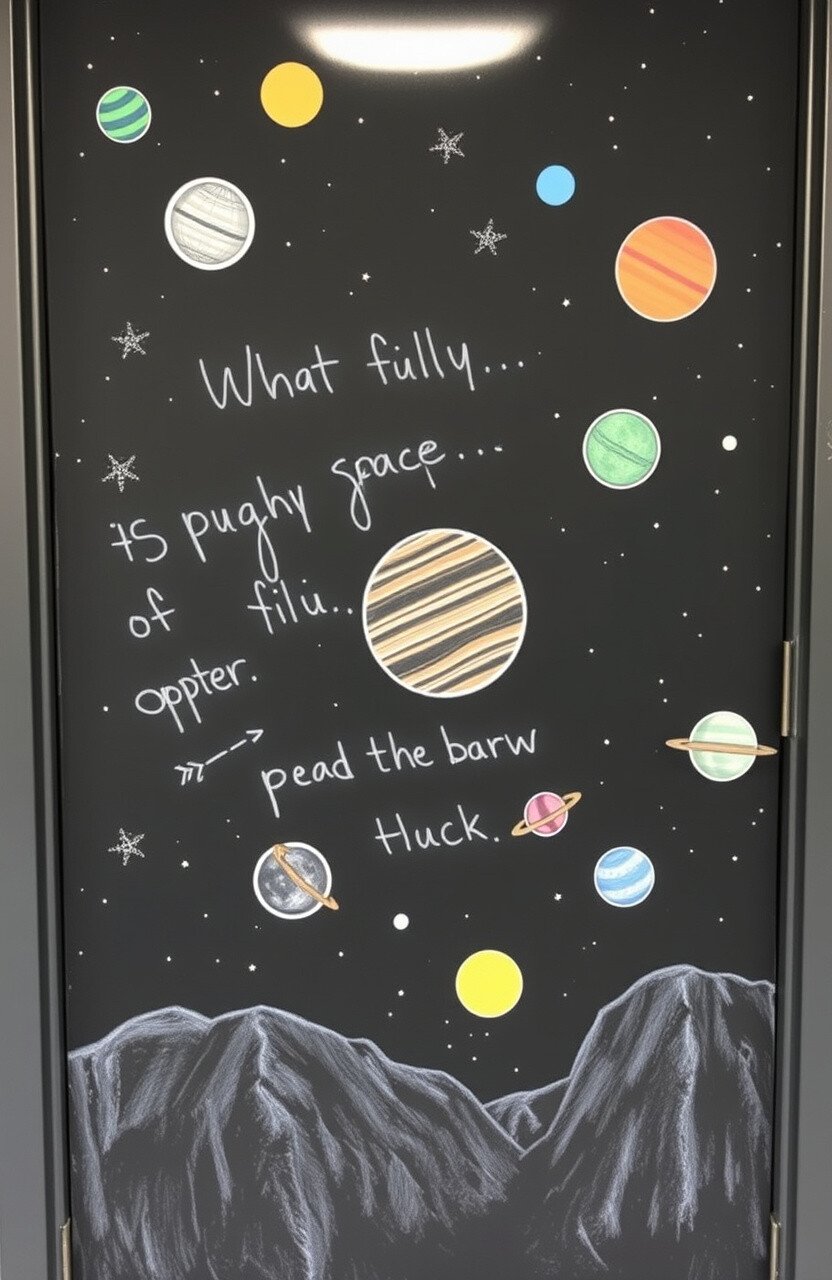 What fully...
its pughy space...
of filu..
oppter.
pead the barw
Huck.